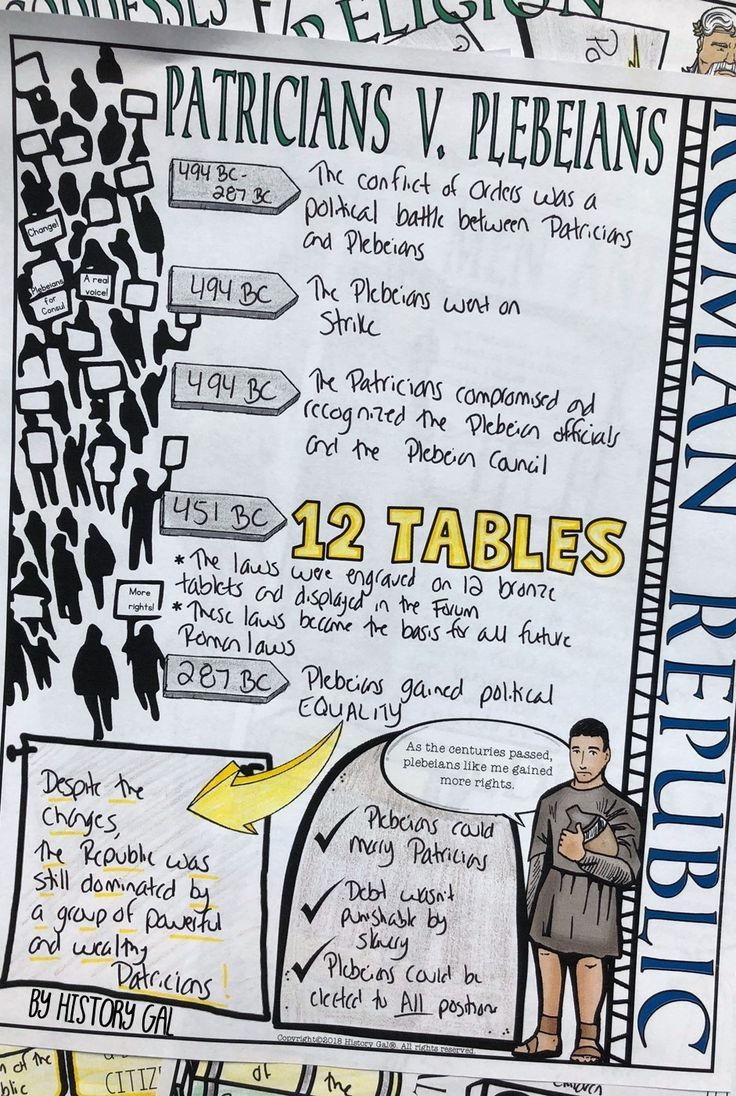 GODDESSES
RELIGION
PATRICIANS V. PLEBEIANS
ROMAN REPUBLIC
494 BC -
287 BC
The conflict of Orders was a
political battle between Patricians
and Plebeians
494 BC
The Plebeians went on
Strike
494 BC
The Patricians compromised and
recognized the Plebeian officials
and the Plebeian Council
451 BC
12 TABLES
* The laws were engraved on 12 bronze
tablets and displayed in the Forum
* These laws became the basis for all future
Roman laws
287 BC
Plebeians gained political
EQUALITY
Change!
Plebeians
for
Consul
A real
voice!
More
rights!
Despite the
changes,
the Republic was
still dominated by
a group of powerful
and wealthy
Patricians!
As the centuries passed,
plebeians like me gained
more rights.
Plebeians could
marry Patricians
Debt wasn't
punishable by
slavery
Plebeians could be
elected to All positions
BY HISTORY GAL
Copyright©2018 History Gal®. All rights reserved.
of the
blic
CITIZ
of
the
children